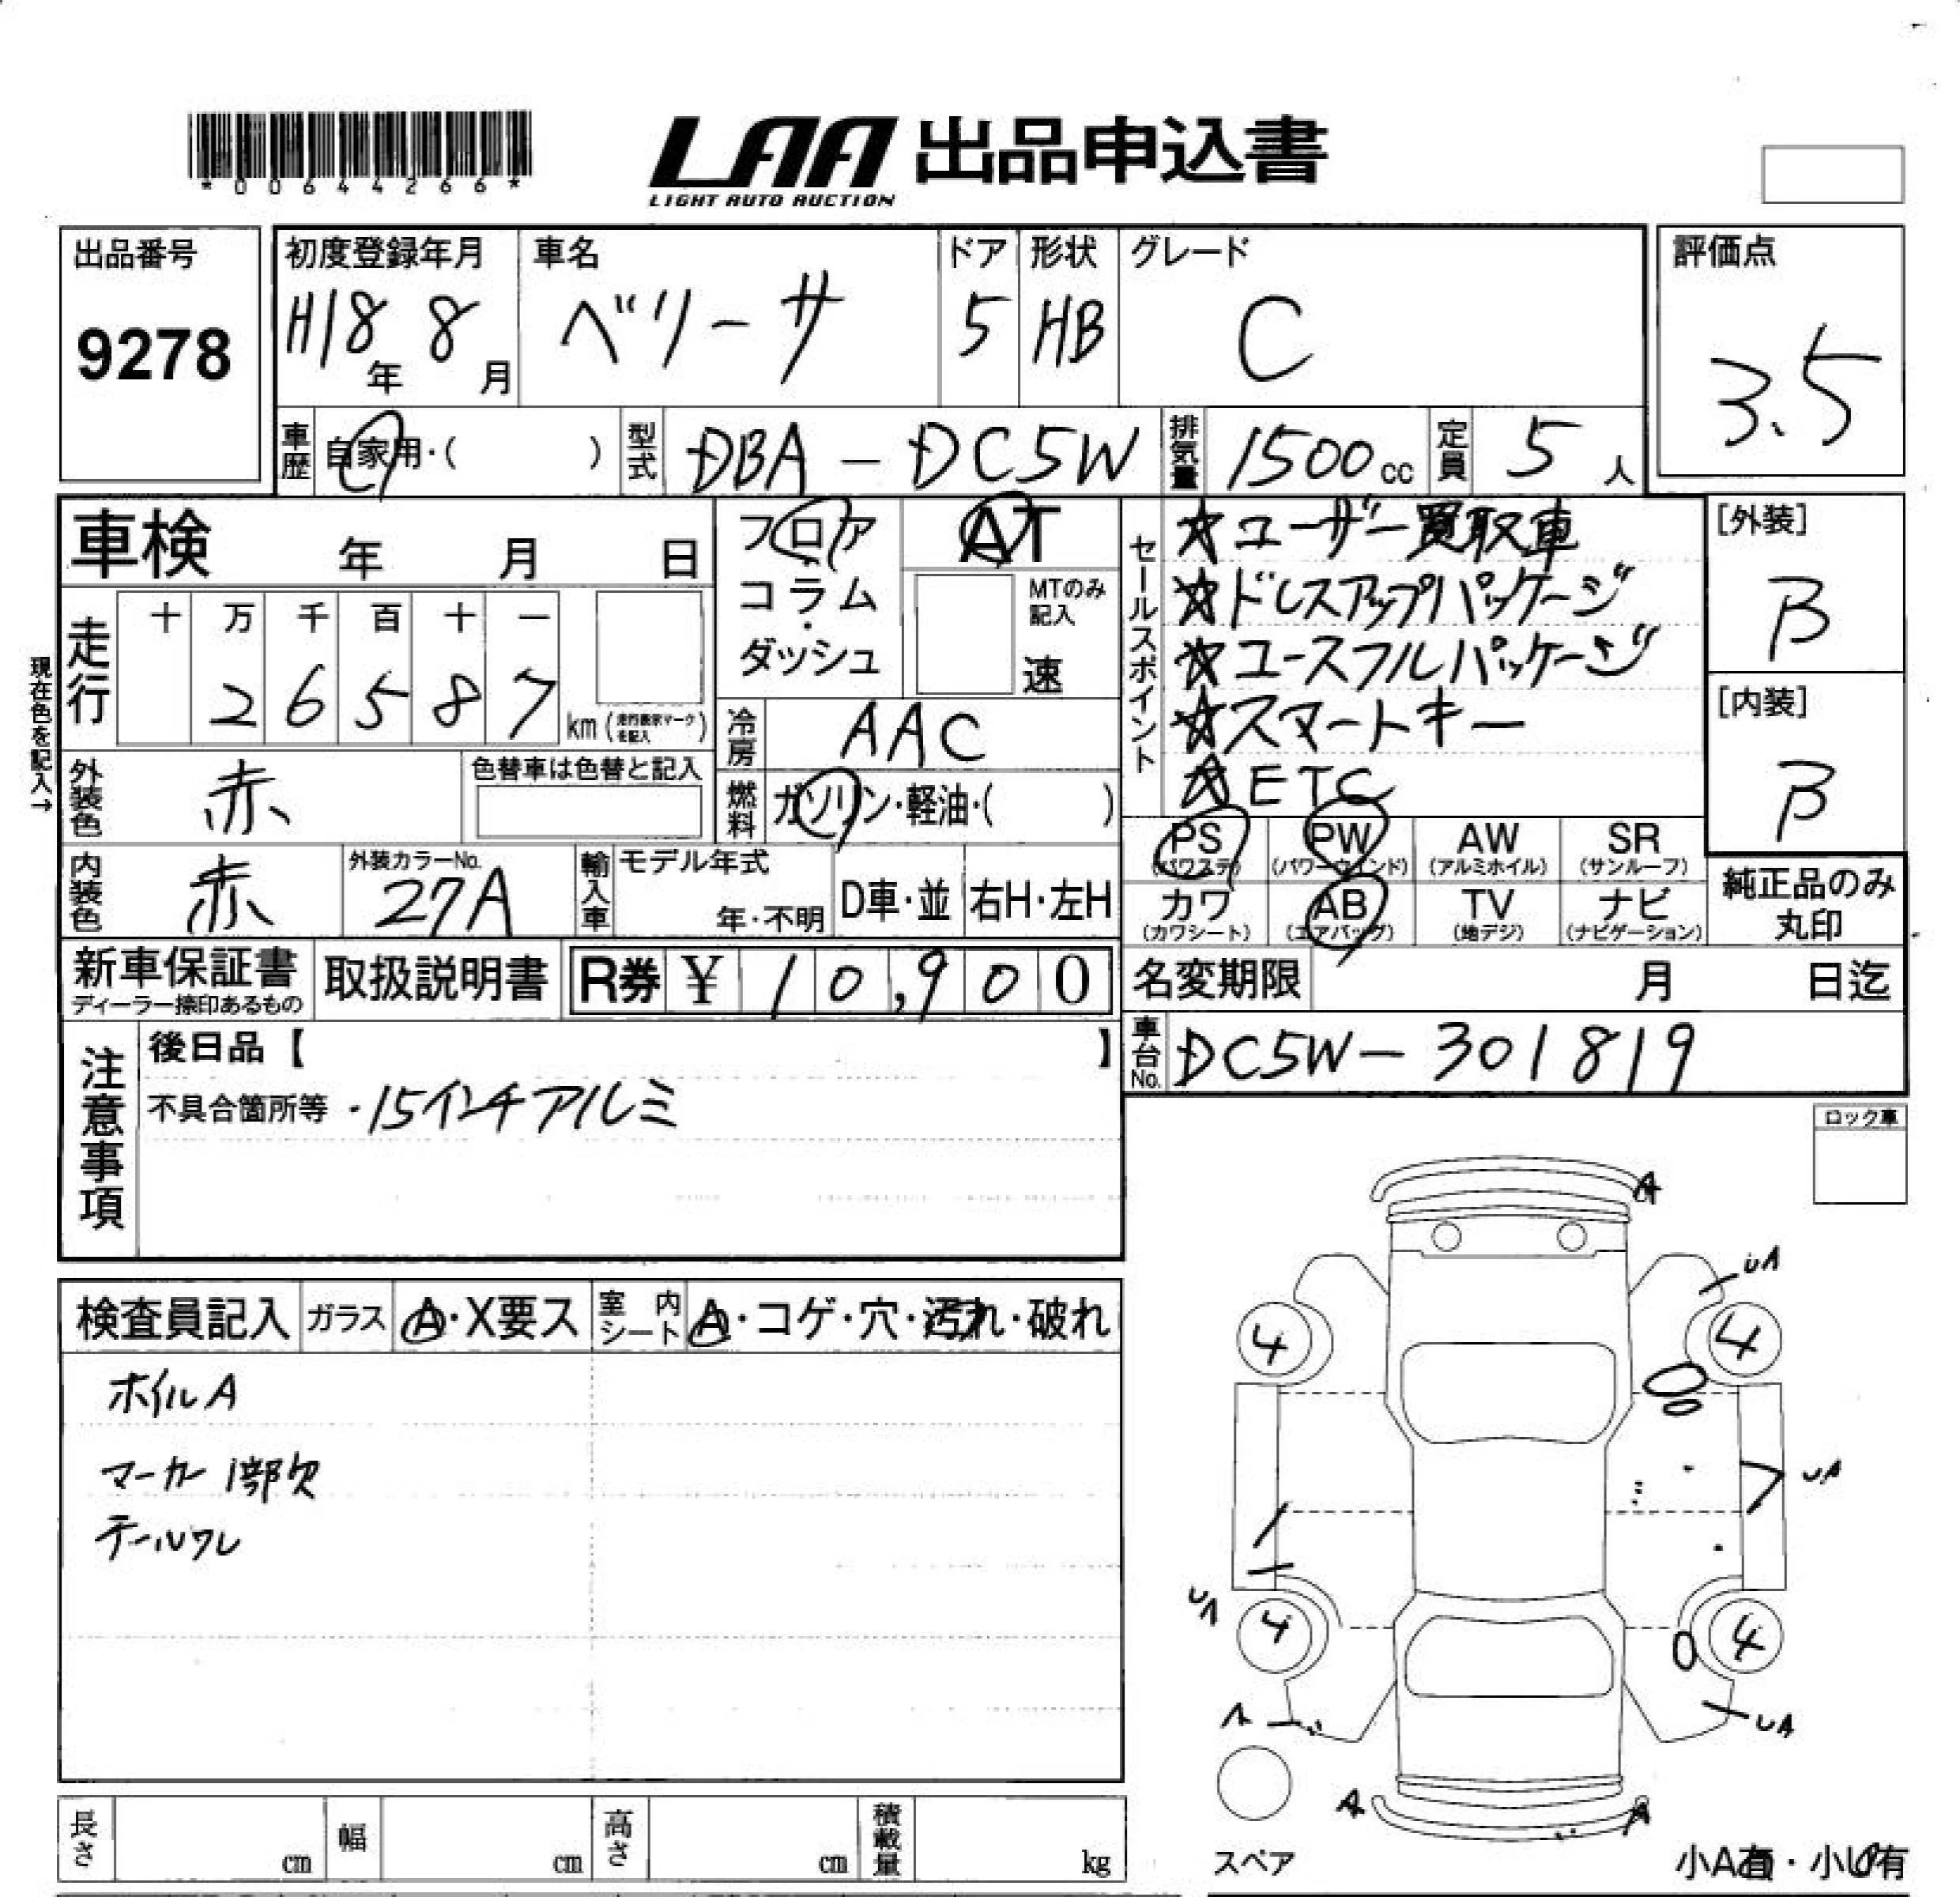 *00644266*
LAA 出品申込書
LIGHT AUTO AUCTION
出品番号
9278
初度登録年月
H18年 8月
車名
ベリーサ
ドア
5
形状
HB
グレード
C
評価点
3.5
車歴
自家用・( )
型式
DBA-DC5W
排気量
1500cc
定員
5人
車検 年 月 日
フロア
コラム
・
ダッシュ
AT
MTのみ記入
速
セールスポイント
☆ユーザー買取車
☆ドレスアップパッケージ
☆ユースフルパッケージ
☆スマートキー
☆ETC
[外装]
B
[内装]
B
現在色を記入→
走行
十 万 千 百 十 一
2 6 5 8 7
km(走行表示マークを記入)
冷房
AAC
外装色
赤
色替車は色替と記入
燃料
ガソリン・軽油・( )
PS (パワステ)
PW (パワーウインド)
AW (アルミホイル)
SR (サンルーフ)
内装色
赤
外装カラーNo.
27A
輸入車
モデル年式
年・不明
D車・並
右H・左H
カワ (カワシート)
AB (エアバッグ)
TV (地デジ)
ナビ (ナビゲーション)
純正品のみ
丸印
新車保証書
ディーラー捺印あるもの
取扱説明書
R券 ¥ 10,900
名変期限 月 日迄
車台No.
DC5W-301819
注意事項
後日品【 】
不具合箇所等 ・15インチアルミ
ロック車
検査員記入
ガラス
A・X要ス
室内シート
A・コゲ・穴・汚れ・破れ
ホイルA
マーカー1部欠
テールワレ
A
UA
4
4
UA
UA
4
4
UA
A
A
スペア
小A有・小U有
長さ cm
幅 cm
高さ cm
積載量 kg